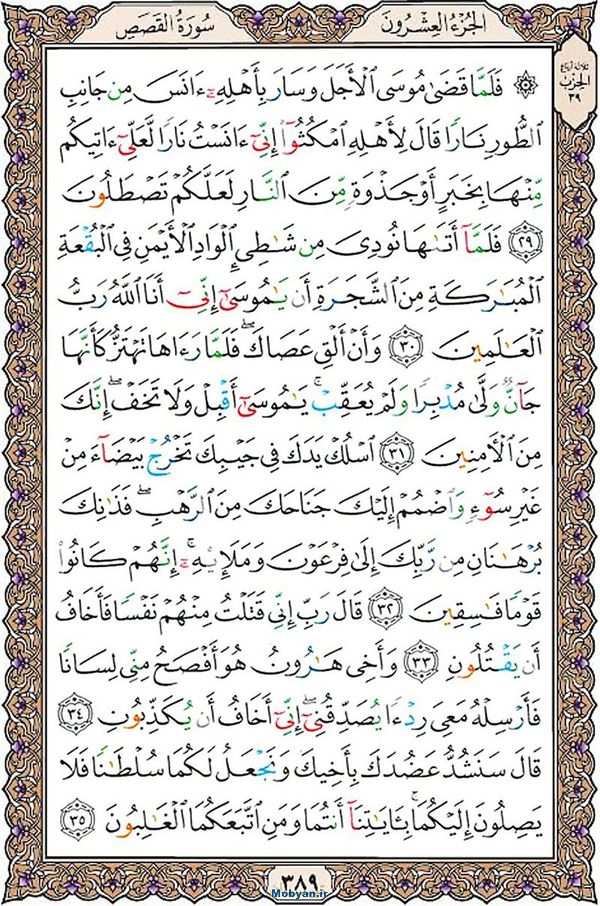 الجزء العشرون
سورة القصص
ثلاثة أرباع
الحزب
٣٩
۞ فَلَمَّا قَضَىٰ مُوسَى ٱلْأَجَلَ وَسَارَ بِأَهْلِهِۦٓ ءَانَسَ مِن جَانِبِ
ٱلطُّورِ نَارًا قَالَ لِأَهْلِهِ ٱمْكُثُوٓا۟ إِنِّىٓ ءَانَسْتُ نَارًا لَّعَلِّىٓ ءَاتِيكُم
مِّنْهَا بِخَبَرٍ أَوْ جَذْوَةٍ مِّنَ ٱلنَّارِ لَعَلَّكُمْ تَصْطَلُونَ
٢٩ فَلَمَّآ أَتَىٰهَا نُودِىَ مِن شَٰطِئِ ٱلْوَادِ ٱلْأَيْمَنِ فِى ٱلْبُقْعَةِ
ٱلْمُبَٰرَكَةِ مِنَ ٱلشَّجَرَةِ أَن يَٰمُوسَىٰٓ إِنِّىٓ أَنَا ٱللَّهُ رَبُّ
ٱلْعَٰلَمِينَ ٣٠ وَأَنْ أَلْقِ عَصَاكَ ۖ فَلَمَّا رَءَاهَا تَهْتَزُّ كَأَنَّهَا
جَآنٌّ وَلَّىٰ مُدْبِرًا وَلَمْ يُعَقِّبْ ۚ يَٰمُوسَىٰٓ أَقْبِلْ وَلَا تَخَفْ ۖ إِنَّكَ
مِنَ ٱلْءَامِنِينَ ٣١ ٱسْلُكْ يَدَكَ فِى جَيْبِكَ تَخْرُجْ بَيْضَآءَ مِنْ
غَيْرِ سُوٓءٍ وَٱضْمُمْ إِلَيْكَ جَنَاحَكَ مِنَ ٱلرَّهْبِ ۖ فَذَٰنِكَ
بُرْهَٰنَانِ مِن رَّبِّكَ إِلَىٰ فِرْعَوْنَ وَمَلَإِي۟هِۦٓ ۚ إِنَّهُمْ كَانُوا۟
قَوْمًا فَٰسِقِينَ ٣٢ قَالَ رَبِّ إِنِّى قَتَلْتُ مِنْهُمْ نَفْسًا فَأَخَافُ
أَن يَقْتُلُونِ ٣٣ وَأَخِى هَٰرُونُ هُوَ أَفْصَحُ مِنِّى لِسَانًا
فَأَرْسِلْهُ مَعِىَ رِدْءًا يُصَدِّقُنِىٓ ۖ إِنِّىٓ أَخَافُ أَن يُكَذِّبُونِ ٣٤
قَالَ سَنَشُدُّ عَضُدَكَ بِأَخِيكَ وَنَجْعَلُ لَكُمَا سُلْطَٰنًا فَلَا
يَصِلُونَ إِلَيْكُمَا ۚ بِـَٔايَٰتِنَآ أَنتُمَا وَمَنِ ٱتَّبَعَكُمَا ٱلْغَٰلِبُونَ ٣٥
٣٨٩
Mobyan.ir